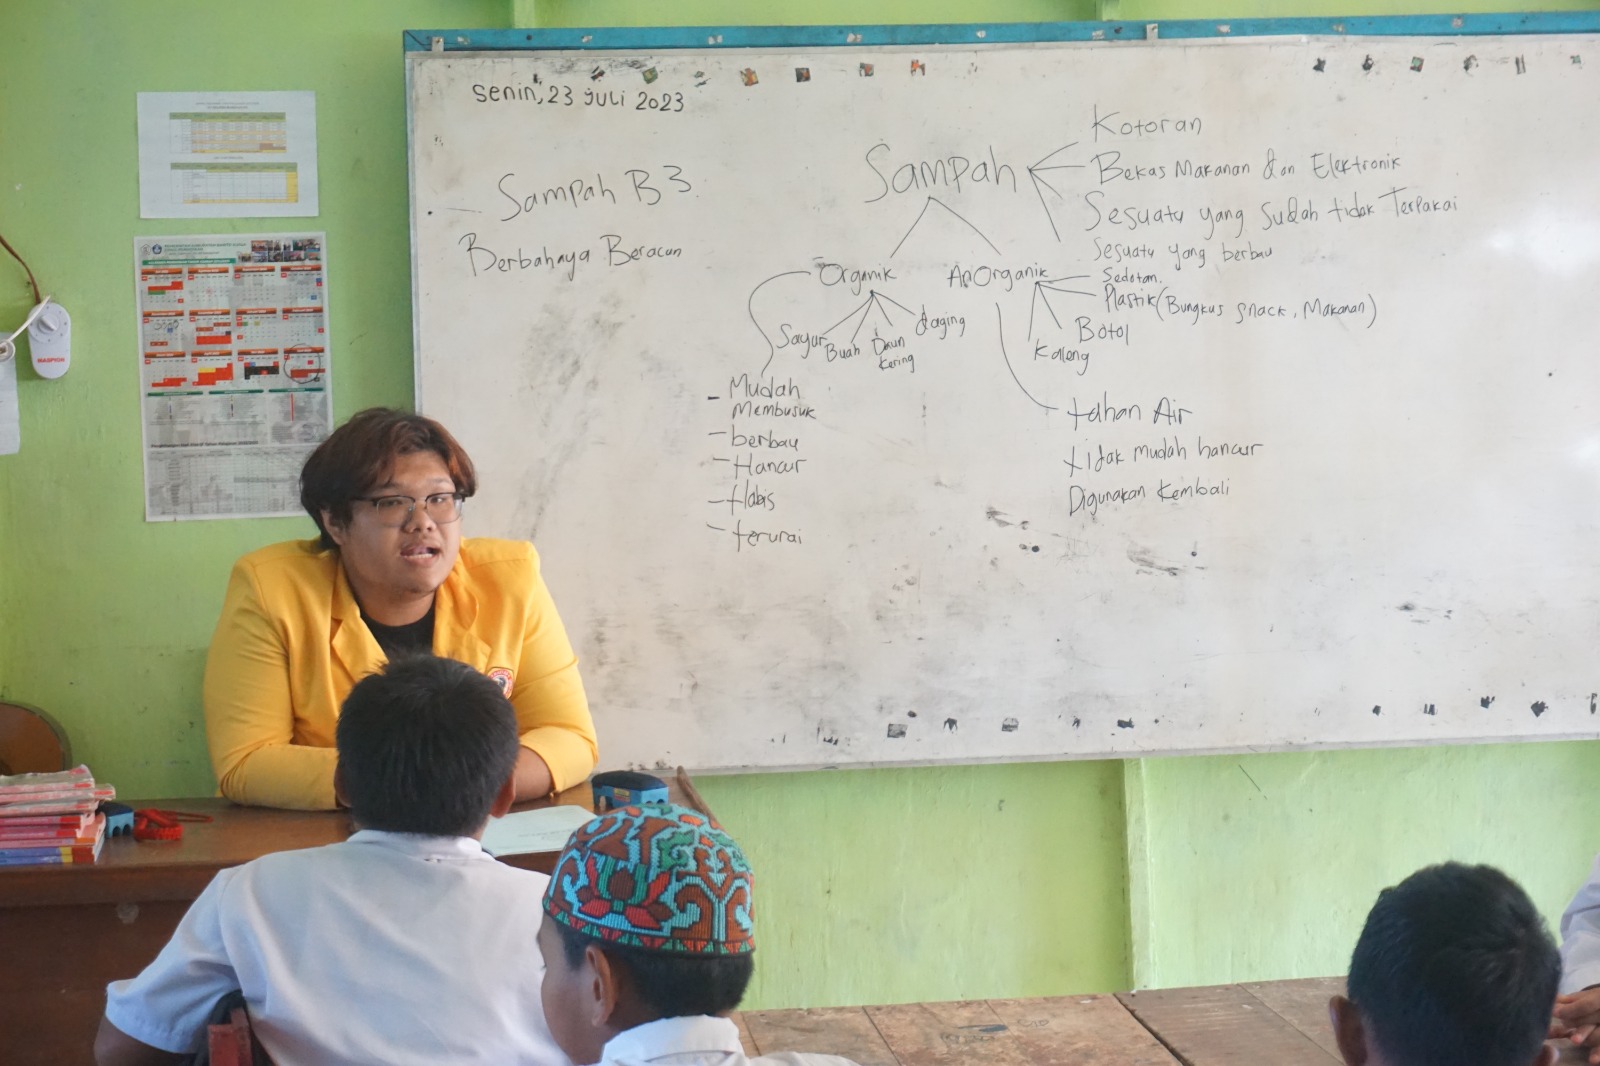 Senin, 23 Juli 2023
Sampah B3
Berbahaya Beracun
Sampah
Kotoran
Bekas Makanan dan Elektronik
Sesuatu yang sudah tidak Terpakai
Sesuatu yang berbau
Organik
Sayur
Buah
Daun
kering
daging
- Mudah
Membusuk
- berbau
- Hancur
- Habis
- terurai
AnOrganik
Sedotan.
Plastik (Bungkus snack, Makanan)
Botol
Kaleng
tahan Air
tidak mudah hancur
Digunakan Kembali
MASPION